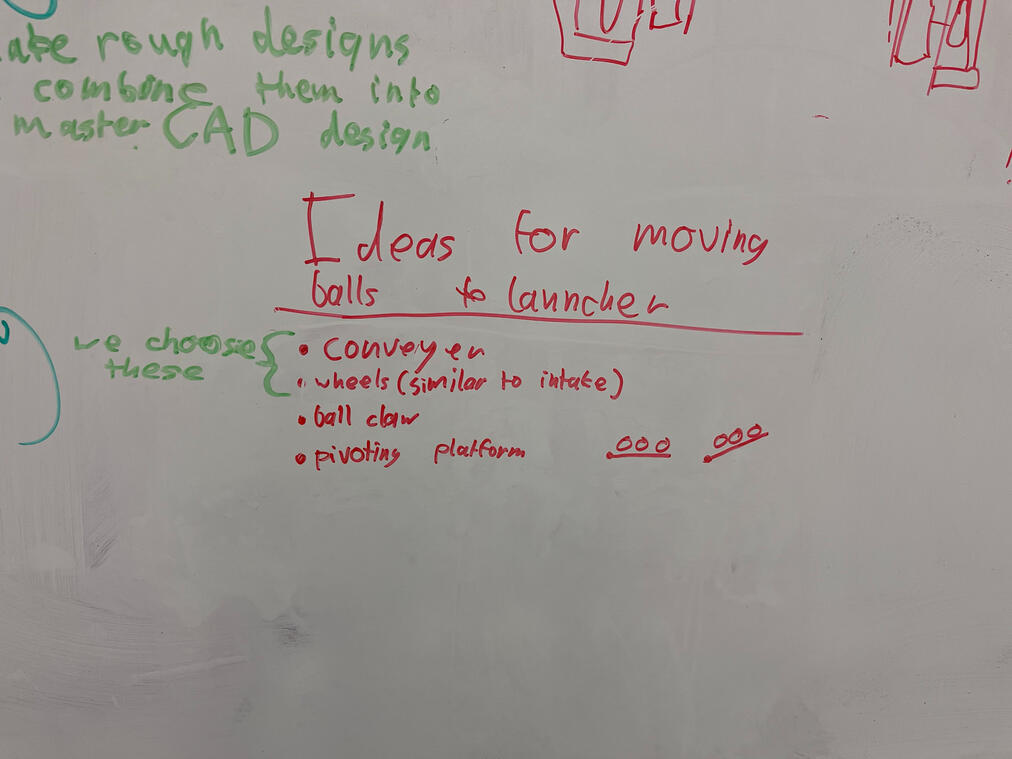 rough designs
combine them into
master CAD design
Ideas for moving
balls to launcher
we choose
these
• conveyer
• wheels (similar to intake)
• ball claw
• pivoting platform